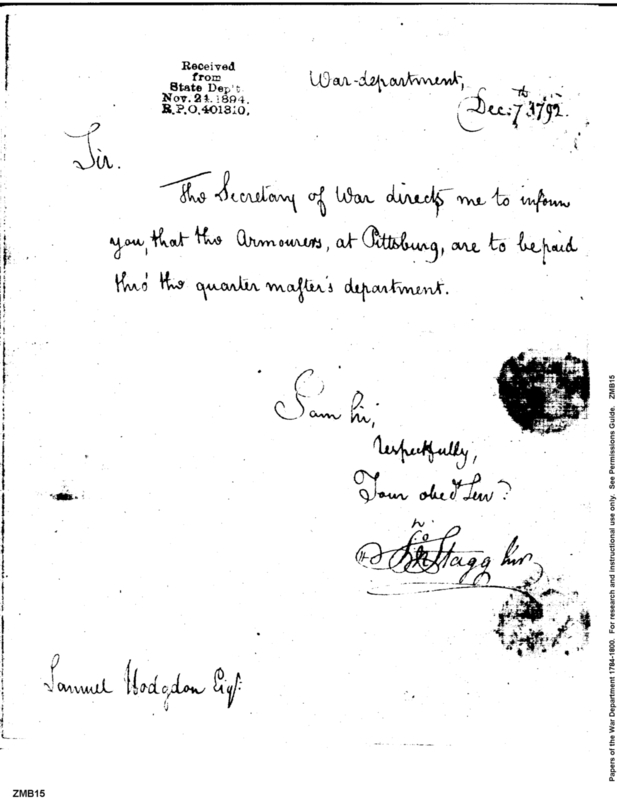 Received
from
State Dep't
Nov. 24. 1894.
R.P.O. 401310.
War-department,
Dec: 7th 1792.
Sir.
The Secretary of War directs me to inform
you, that the Armourers, at Pittsburg, are to be paid
thro' the quarter master's department.
I am Sir,
respectfully,
Your obed Serv
Jno Stagg Junr
Samuel Hodgdon Esqr
Papers of the War Department 1784-1800. For research and instructional use only. See Permissions Guide. ZMB15
ZMB15